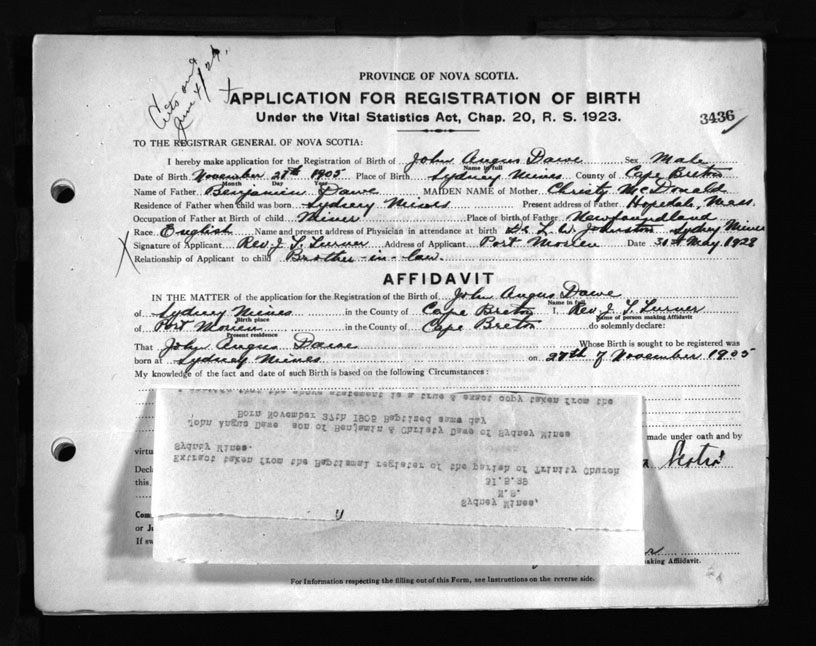 Acts one
June 4/28.
PROVINCE OF NOVA SCOTIA.
APPLICATION FOR REGISTRATION OF BIRTH
Under the Vital Statistics Act, Chap. 20, R. S. 1923.
3436
TO THE REGISTRAR GENERAL OF NOVA SCOTIA:
I hereby make application for the Registration of Birth of John Angus Dawe Sex Male
Name in full
Date of Birth November 28th 1905 Place of Birth Sydney Mines County of Cape Breton
Month Day Year
Name of Father Benjamin Dawe MAIDEN NAME of Mother Christy McDonald
Residence of Father when child was born Sydney Mines Present address of Father Hopedale, Mass.
Occupation of Father at Birth of child Miner Place of birth of Father Newfoundland
Race English Name and present address of Physician in attendance at birth Dr. L. W. Johnston Sydney Mines
Signature of Applicant Rev. J. T. Turner Address of Applicant Port Morien Date 31st May, 1928
Relationship of Applicant to child Brother-in-law.
AFFIDAVIT
IN THE MATTER of the application for the Registration of the Birth of John Angus Dawe
Name in full
of Sydney Mines in the County of Cape Breton I, Rev. J. T. Turner
Birth place Name of person making Affidavit
of Port Morien in the County of Cape Breton do solemnly declare:
Present residence
That John Angus Dawe Whose Birth is sought to be registered was
born at Sydney Mines on 28th of November 1905
My knowledge of the fact and date of such Birth is based on the following Circumstances:
Sydney Mines,
N.S.
Extract taken from the Baptismal register of the parish of Trinity Church
Sydney Mines.
John Angus Dawe son of Benjamin & Christy Dawe of Sydney Mines
Born November 27th 1905 Baptized same day
the above statement is a true & exact copy taken from the
made under oath and by
virtu
Scotia
Decla
this,
Com
or J
If sw
aking Affidavit.
For Information respecting the filling out of this Form, see Instructions on the reverse side.